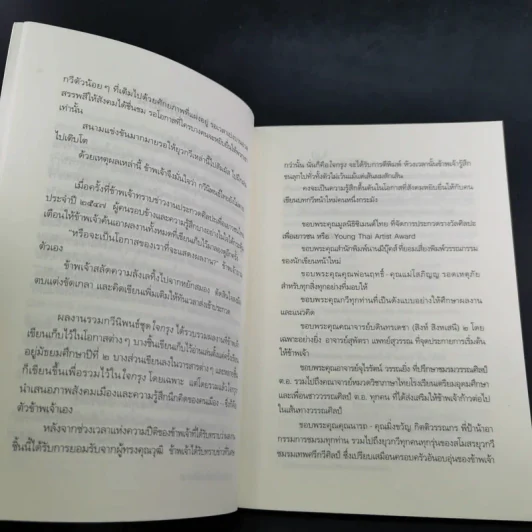 กวีตัวน้อยๆ ที่เติมไปด้วยศักยภาพที่แฝงอยู่ รอเวลา
สรรพสีให้สังคมได้ชื่นชม รอโอกาสที่ใครบางคนจะหยิบยื่นให้
เท่านั้น
สนามแข่งขันมากมายรอให้ยุวกวีเหล่านี้ไป
ไปเติบโต
ด้วยเหตุผลเหล่านี้ ข้าพเจ้าจึงมั่นใจว่า กวีนิพนธ์ไทยยัง
เมื่อครั้งที่ข้าพเจ้าทราบข่าวงานประกวดศิลปินเยาวชนไทย
ประจำปี ๒๕๔๗ ผู้คนรอบข้างและความรู้สึกบางอย่างในใจได้
เตือนให้ข้าพเจ้าค้นเอาผลงานทั้งหมดที่เขียนเก็บไว้มา
“หรือจะเป็นโอกาสของเราที่จะแสดงผลงาน” ข้าพเจ้า
ตัวเอง
ข้าพเจ้าสลัดความลังเลทิ้งไปจากหยักสมอง ตัดสินใจ
ตบแต่งขัดเกลา และคิดเขียนเพิ่มเติมให้ทันเวลาส่งเข้าประกวด
ผลงานรวมกวีนิพนธ์ชุดใจกรุง ได้รวบรวมผลงานที่ข้าพเจ้า
เขียนเก็บไว้ในโอกาสต่าง ๆ บางชิ้นเขียนเก็บไว้อ่านเล่นตั้งแต่ครั้ง
อยู่มัธยมศึกษาปีที่ ๒ บางส่วนเขียนลงในวารสารต่าง ๆ และ
ก็เขียนขึ้นเพื่อรวมไว้ในใจกรุง โดยเฉพาะ แต่โดยรวมแล้ว
นำเสนอภาพสังคมเมืองและความรู้สึกนึกคิดของคนเมือง - ซึ่งก็คือ
ตัวข้าพเจ้าเอง
หลังจากช่วงเวลาแห่งความปีติของข้าพเจ้าที่ได้รับทราบว่า
ชิ้นนี้ได้รับการยอมรับจากผู้ทรงคุณวุฒิ ข้าพเจ้าได้รับทราบข่าวดี
กว่านั้น นั่นก็คือใจกรุง จะได้รับการตีพิมพ์ ห้วงเวลานั้นข้าพเจ้ารู้สึก
ขนลุกไปทั่วทั้งตัวไม่เว้นแม้แต่เส้นผมสักเส้น
คงจะเป็นความรู้สึกตื้นตันในโอกาสที่สังคมหยิบยื่นให้กับคน
เขียนบทกวีหน้าใหม่คนหนึ่งกระมัง
ขอบพระคุณมูลนิธิซิเมนต์ไทย ที่จัดการประกวดรางวัลศิลปะ
เพื่อเยาวชน หรือ Young Thai Artist Award
ขอบพระคุณสำนักพิมพ์นานมีบุ๊คส์ ที่ยอมเสี่ยงพิมพ์วรรณกรรม
ของนักเขียนหน้าใหม่
ขอบพระคุณคุณพ่อนฤทธิ์ - คุณแม่โสภิญญู รอดเหตุภัย
สำหรับทุกสิ่งทุกอย่างที่มอบให้
ขอบพระคุณกวีทุกท่านที่เป็นดังแบบอย่างให้ศึกษาผลงาน
และแนวคิด
ขอบพระคุณคณาจารย์บดินทรเดชา (สิงห์ สิงหเสนี) ๒ โดย
เฉพาะอย่างยิ่ง อาจารย์สุพัตรา แพทย์สุวรรณ ที่จุดประกายการเริ่มต้น
ให้ข้าพเจ้า
ขอบพระคุณอาจารย์จุไรรัตน์ วรรณยิ่ง ที่ปรึกษาชมรมวรรณศิลป์
ต.อ. รวมไปถึงคณาจารย์หมวดวิชาภาษาไทยโรงเรียนเตรียมอุดมศึกษา
และเพื่อนชาววรรณศิลป์ ต.อ. ทุกคน ที่ได้ส่งเสริมให้ข้าพเจ้าก้าวต่อไป
ในเส้นทางวรรณศิลป์
ขอบพระคุณคุณนารถ - คุณมิ่งขวัญ กิตติวรรณกร พี่ป้าน้าอา
กรรมการชมรมทุกท่าน รวมไปถึงยุวกวีทุกคนทุกรุ่นของสโมสรยุวกวี
ชมรมเทพศรีกวีศิลป์ ซึ่งเปรียบเสมือนครอบครัวอันอบอุ่นของข้าพเจ้า